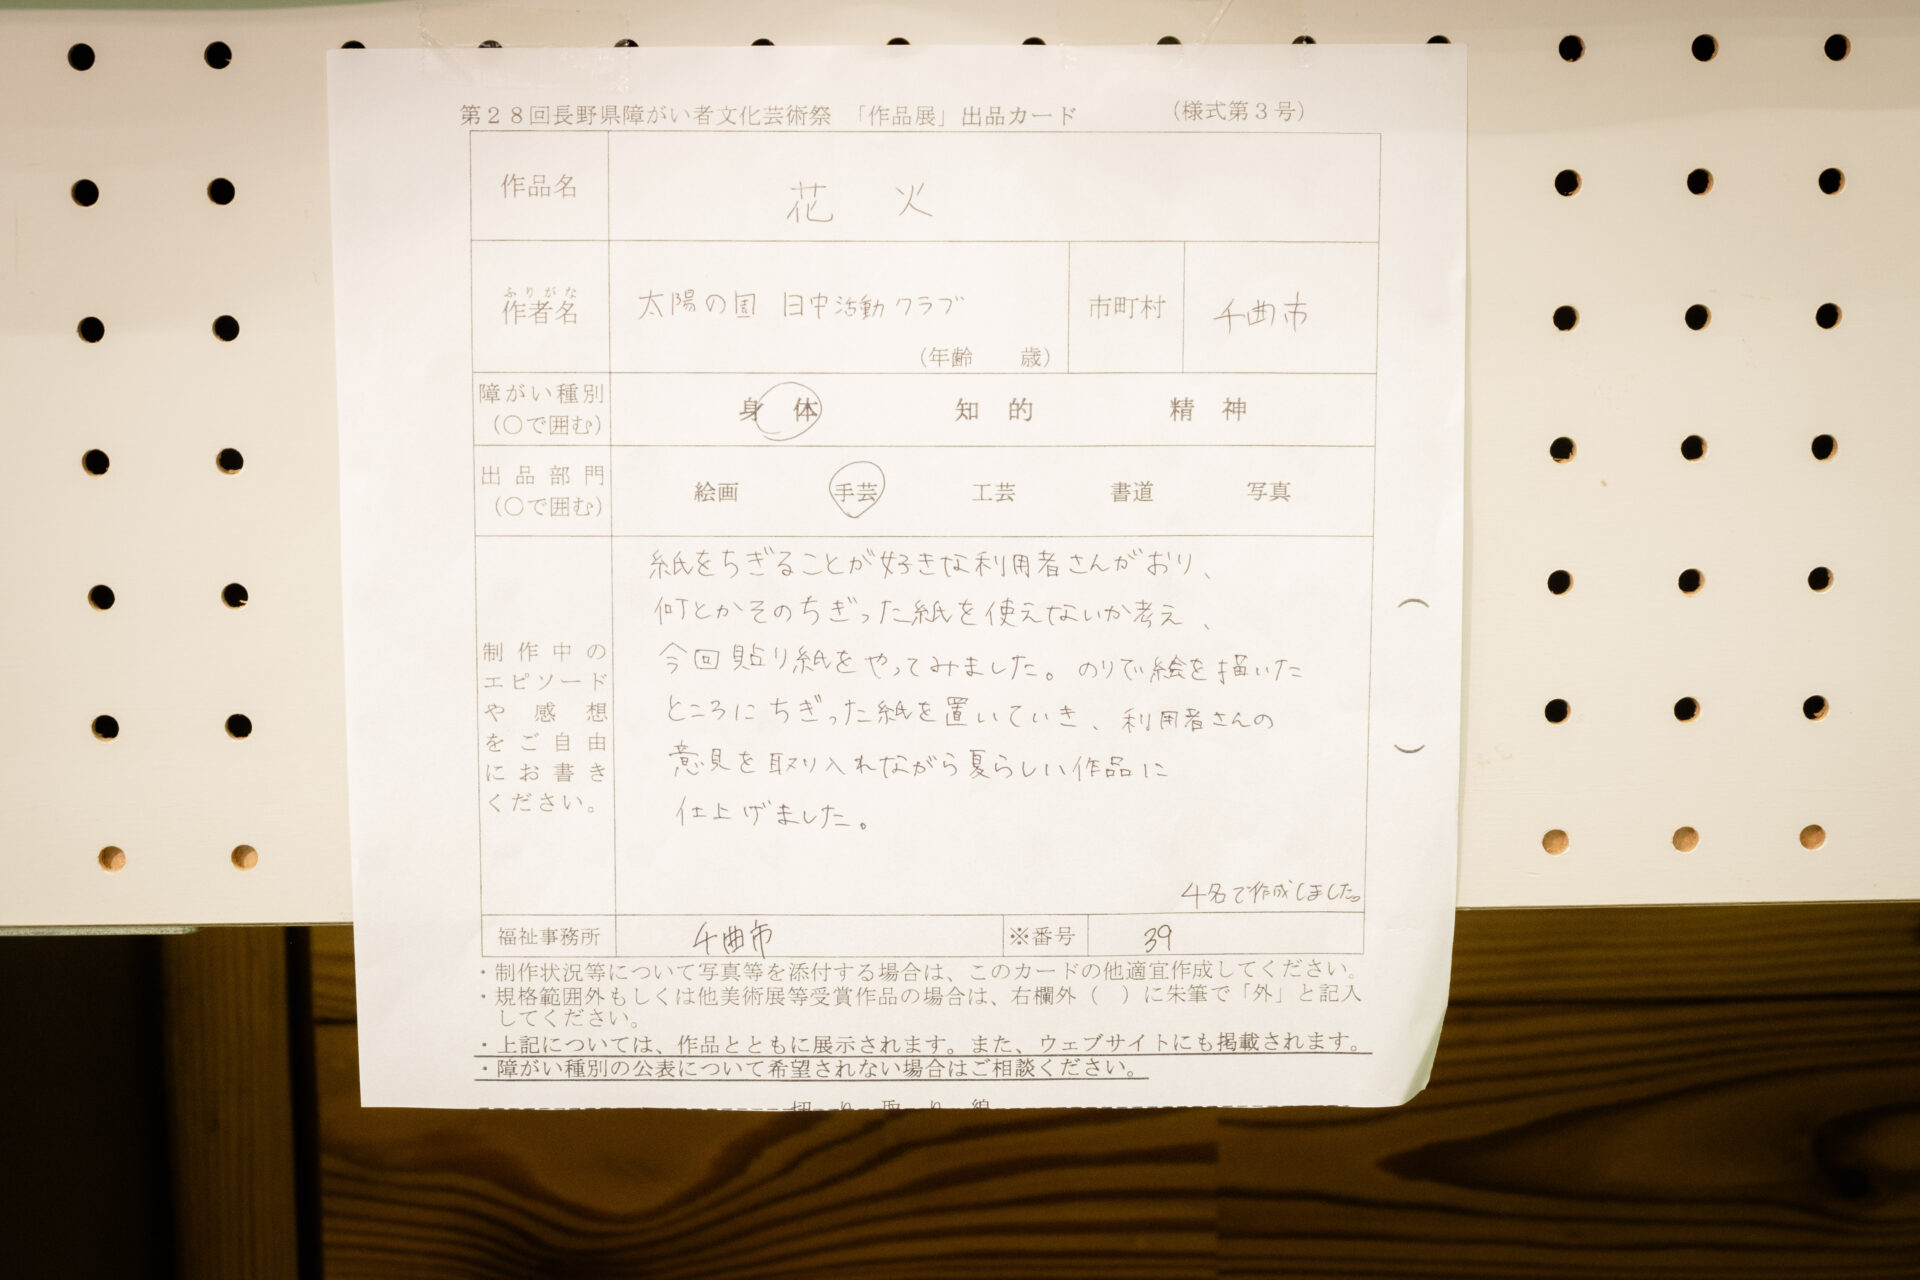 第28回長野県障がい者文化芸術祭 「作品展」出品カード (様式第3号)
作品名 花 火
ふりがな
作者名 太陽の園 日中活動クラブ 市町村 千曲市
(年齢 歳)
障がい種別
(〇で囲む) 身 体 知 的 精 神
出品部門
(〇で囲む) 絵画 手芸 工芸 書道 写真
制作中の
エピソード
や感想
をご自由
にお書き
ください。
紙をちぎることが好きな利用者さんがおり、
何とかそのちぎった紙を使えないか考え、
今回貼り紙をやってみました。のりで絵を描いた
ところにちぎった紙を置いていき、利用者さんの
意見を取り入れながら夏らしい作品に
仕上げました。
4名で作成しました。
福祉事務所 千曲市 ※番号 39
・制作状況等について写真等を添付する場合は、このカードの他適宜作成してください。
・規格範囲外もしくは他美術展等受賞作品の場合は、右欄外( )に朱筆で「外」と記入
してください。
・上記については、作品とともに展示されます。また、ウェブサイトにも掲載されます。
・障がい種別の公表について希望されない場合はご相談ください。
切り取り線